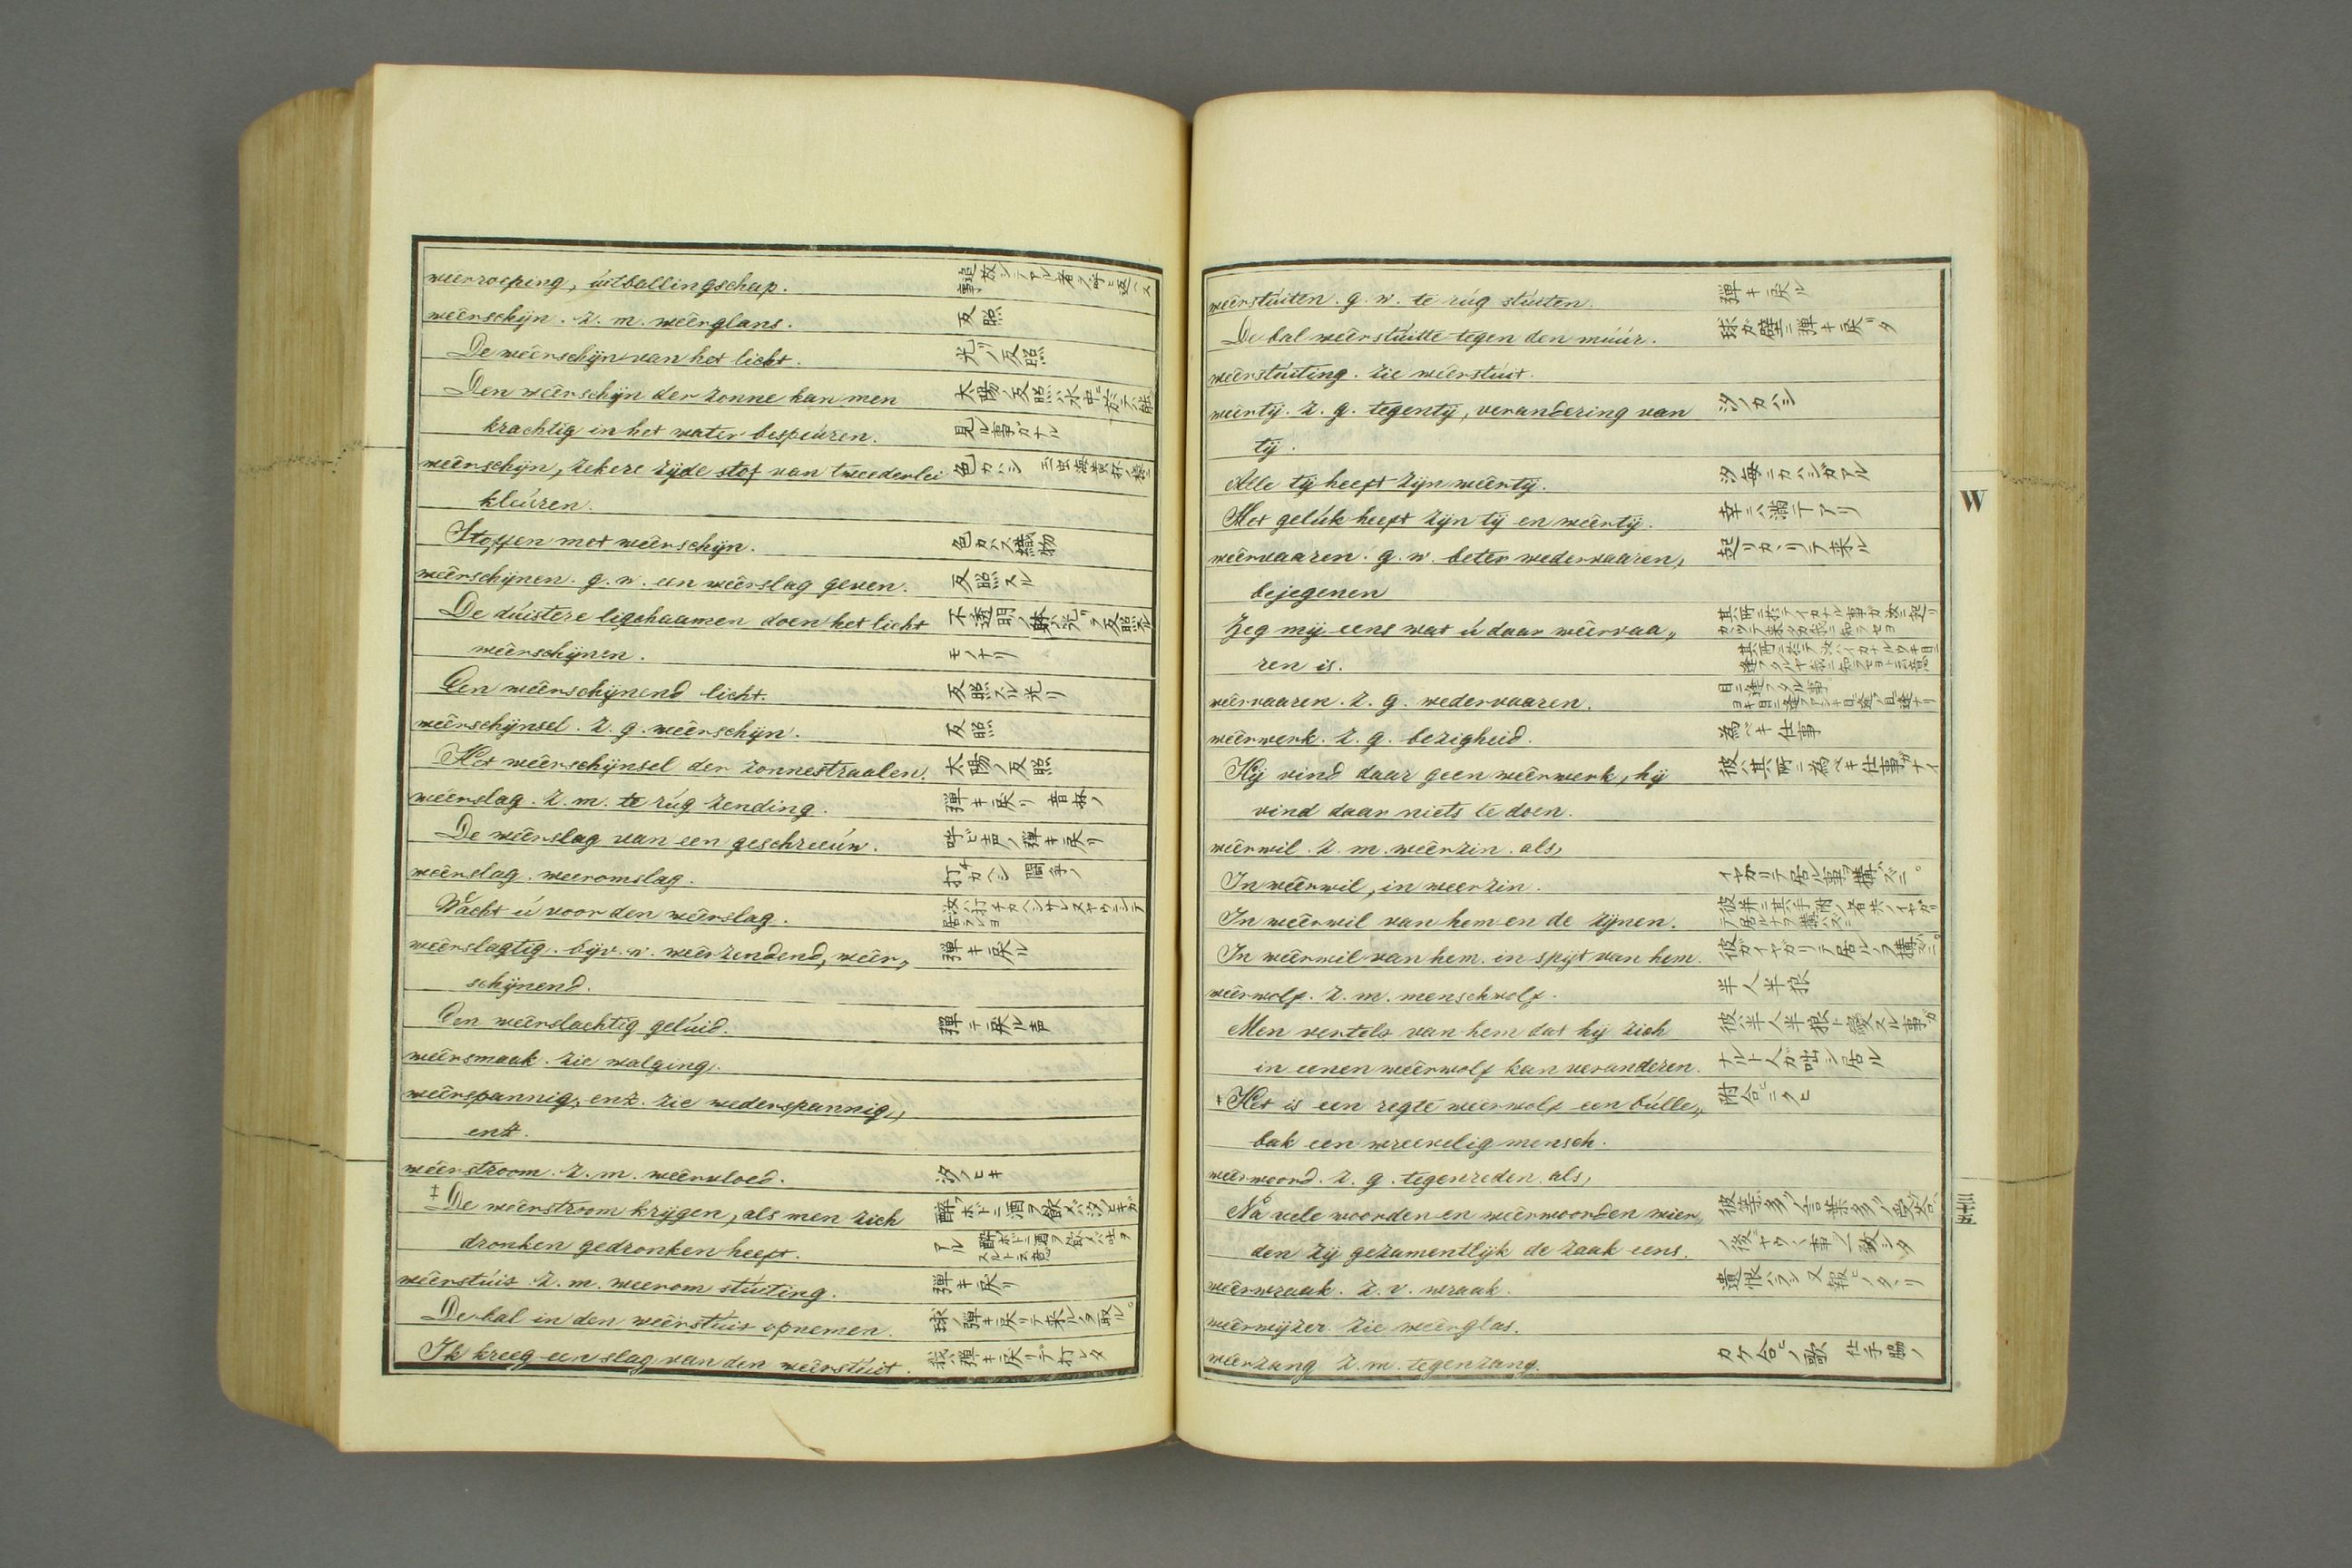 weêrroeping, úitballingschap. 追放シテアル者ヲ呼ビ返ス事
weêrschijn. z. m. weêrglans. 反照
De weêrschijn van het licht. 光リノ反照
Den weêrschijn der zonne kan men 太陽ノ反照ハ水中ニ於テ能
krachtig in het water bespeúren. 見ル事ガナル
weêrschijn, zekere zijde stof van tweederlei 色カハシ
kleúren.
Stoffen met weêrschijn. 色カハス織物
weêrschijnen. g. w. een weêrslag geven. 反照スル
De dúistere ligchaamen doen het licht 不透明ノ躰ハ光リヲ反照スル
weêrschijnen. モノナリ
Een weêrschijnend licht. 反照スル光リ
weêrschijnsel. z. g. weêrschijn. 反照
Het weêrschijnsel der zonnestraalen. 太陽ノ反照
weêrslag. z. m. te rúg zending. 弾キ戻リ 音杯ノ
De weêrslag van een geschreeúw. 呼ビ声ノ弾キ戻リ
weêrslag. weeromslag. 打チカヘシ 闘争ノ
Wacht ú voor den weêrslag. 汝ハ打チカヘシサレヌヤウニシテ居ラレヨ
weêrslagtig. bijv. w. weêrzendend, weêr„ 弾キ戻ル
schijnend.
Een weêrslachtig gelúid. 弾テ戻ル声
weêrsmaak. zie walging.
weêrspannig, enz. zie wederspannig,
enz.
weêrstroom. z. m. weêrvloed. 汐ノヒキ
‡ De weêrstroom krijgen, als men zich 酔フホドニ酒ヲ飲メバ汐ヒキガ
dronken gedronken heeft. アル 酔フホドニ酒ヲ飲メバ吐ヲスルト云意
weêrstúit. z. m. weerom stúiting. 弾キ戻リ
De bal in den weêrstúit opnemen. 球ノ弾キ戻リテ来ルヲ取ル。
Ik kreeg een slag van den weêrstúit. 我ハ弾キ戻リデ打レタ
weêrstúiten. g. w. te rúg stúiten. 弾キ戻ル
De bal weêrstúitte tegen den múúr. 球ガ壁ニ弾キ戻リタ
weêrstúiting. zie weêrstúit.
weêrtij. z. g. tegentij, verandering van 汐ノカハシ
tij.
Alle tij heeft zijn weêrtij. 汐毎ニカハシガアル
Het gelúk heeft zijn tij en weêrtij. 幸ニハ満干アリ
weêrvaaren. g. w. beter wedervaaren, 起リカヽリテ来ル
bejegenen
Zeg mij eens wat ú daar weêrvaa„ 其所ニ於テイカナル事ガ汝ニ起リカヽツテ来タカ我ニ知ラセヨ
ren is.
weêrvaaren. z. g. wedervaaren. 目ニ逢フタル事
weêrwerk. z. g. bezigheid. 為ベキ仕事
Hij vind daar geen weêrwerk, hij 彼ハ其所ニ為ベキ仕事ガナイ
vind daar niets te doen.
weêrwil. z. m. weêrzin. als,
In weêrwil, in weerzin. イヤガリテ居ル事ヲ構ハズニ。
In weêrwil van hem en de zijnen. 彼并ニ其手附ノ者共ノイヤガリテ居ルナヲ構ハズニ
In weêrwil van hem. in spijt van hem. 彼ガイヤガリテ居ルノヲ構ハズニ。
weêrwolf. z. m. menschwolf. 半人半狼
Men vertelt van hem dat hij zich 彼ハ半人半狼ト変スル事ガ
in eenen weêrwolf kan veranderen. ナルト人ガ咄シ居ル
‡ Het is een regte weêrwolf een búlle„ 附合ニクヒ
bak een wreevelig mensch.
weêrwoord. z. g. tegenreden. als,
Na vele woorden en weêrwoorden wier„ 彼等ハ多クノ言葉多クノ受答
den zij gezamentlijk de zaak eens. ノ後ヤウヽ事ガ一致シタ
weêrwraak. z. v. wraak. 遺恨ハラシ 又報ヒノタヽリ
weêrwijzer. zie weêrglas.
weêrzang z. m. tegenzang. カケ合ヒノ歌 仕手脇ノ
W